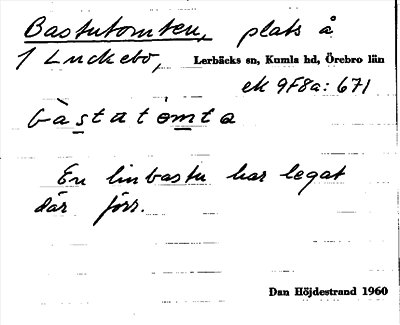 Bastutomten, plats å
1 Luckebo, Lerbäcks sn, Kumla hd, Örebro län
ek 9F8a: 671
bàstatómta
En linbastu har legat
där förr.
Dan Höjdestrand 1960